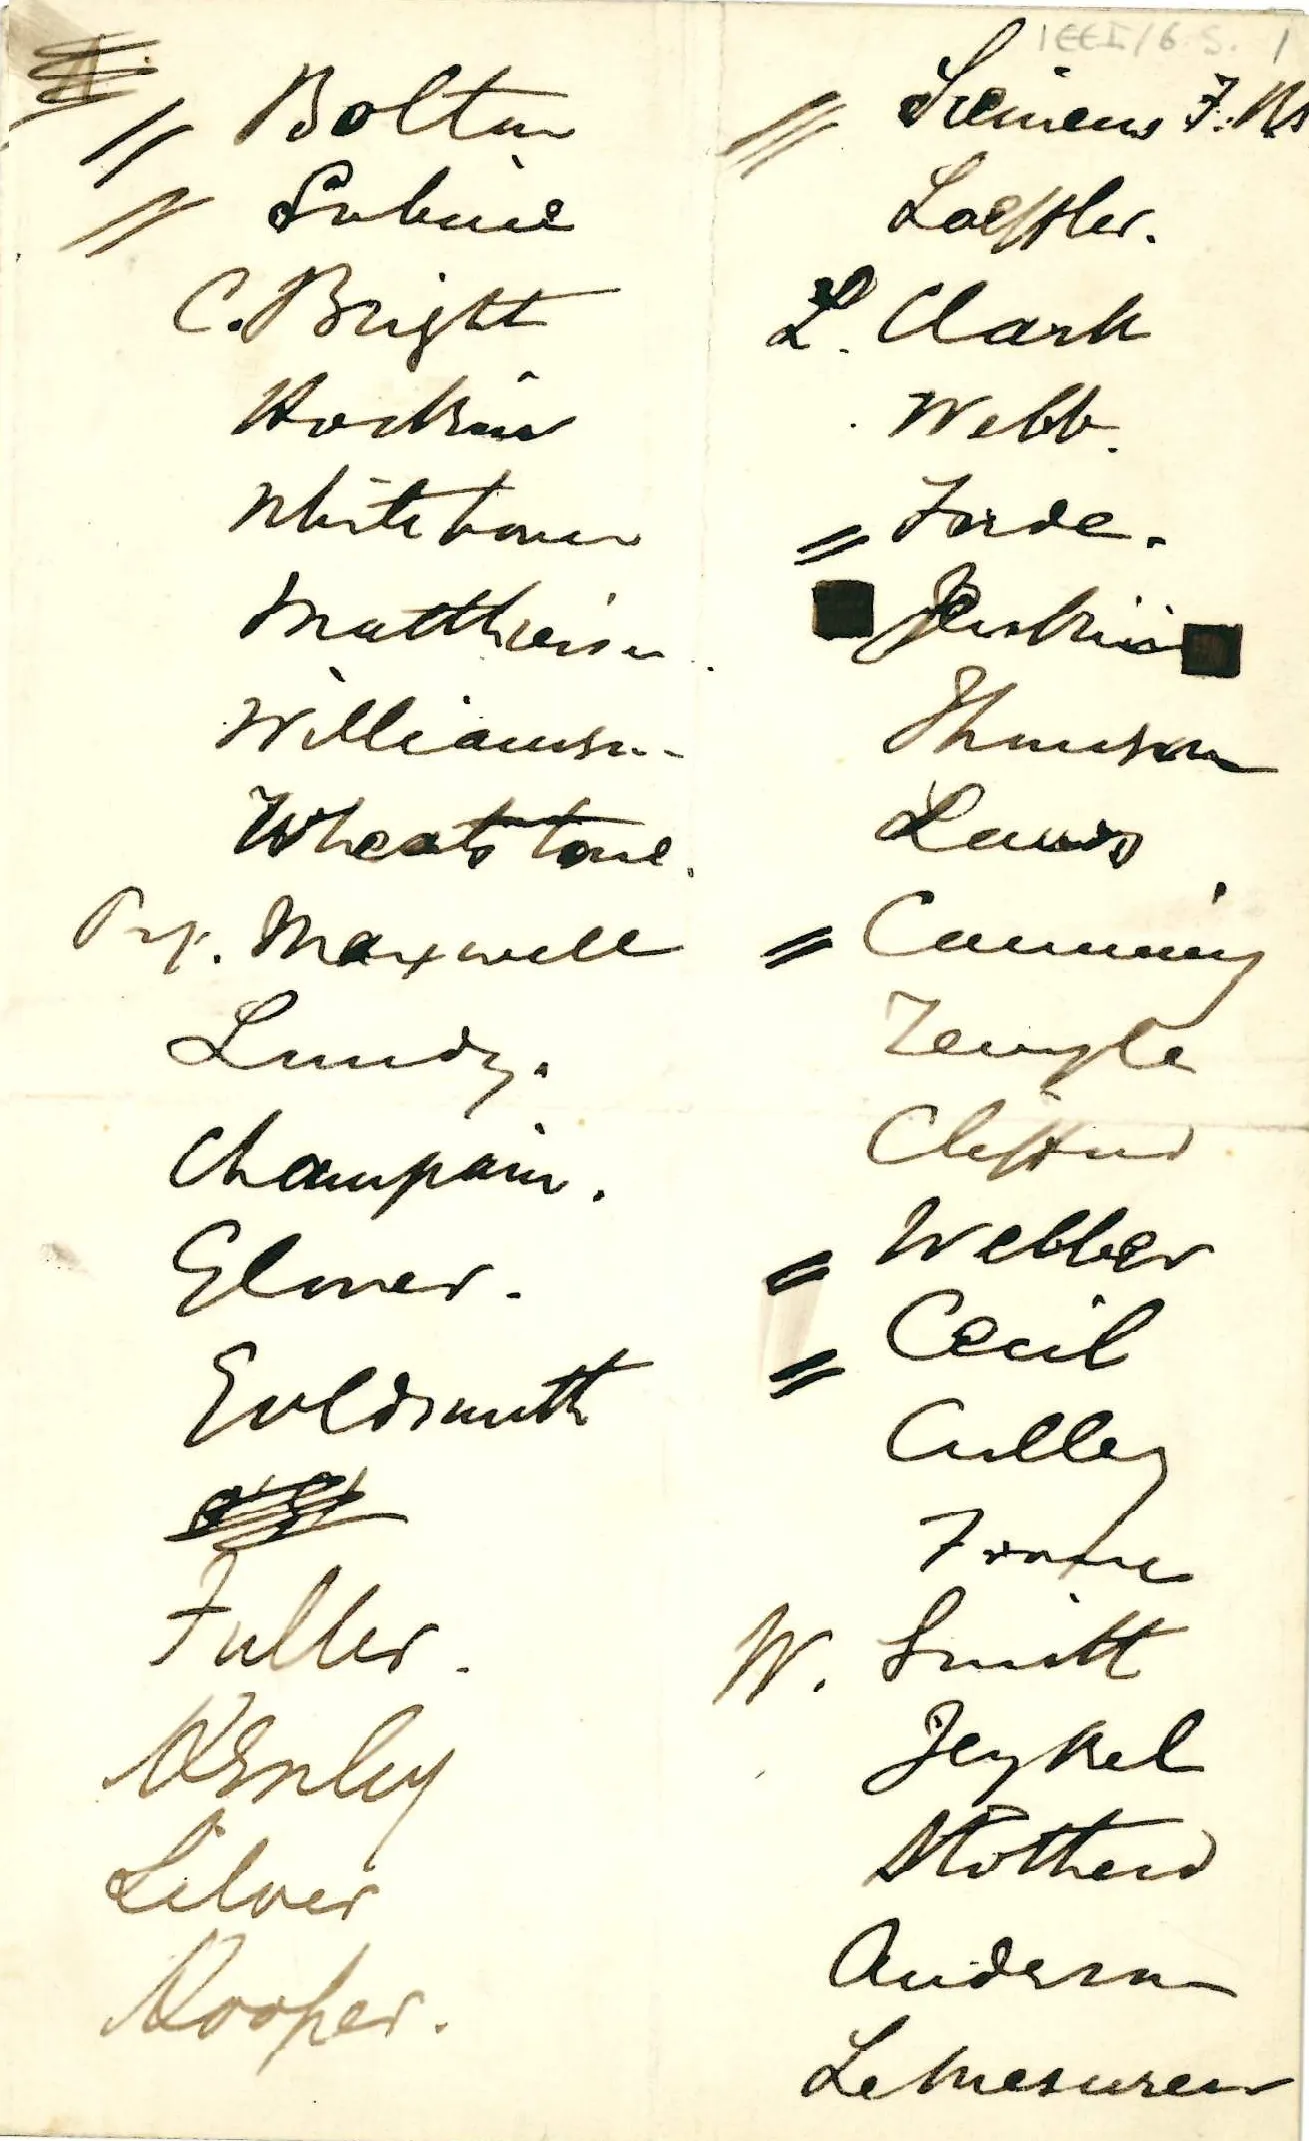 IEEI/6.S. 1
Bolton
Sabine
C. Bright
Hockin
Whitehouse
Matthieson
Williamson
Wheatstone.
Prof. Maxwell
Lundy.
Champain.
Elmer.
Goldsmith
Fuller.
Henley
Silver
Hooper.
Siemens F.
Loeffler.
L. Clark
Webb.
Forde.
Jenkin
Thomson
Laws
Canning
Temple
Clifford
Webber
Cecil
Culley
W. Smith
Jeykel
Stotherd
Anderson
Le Mesurier